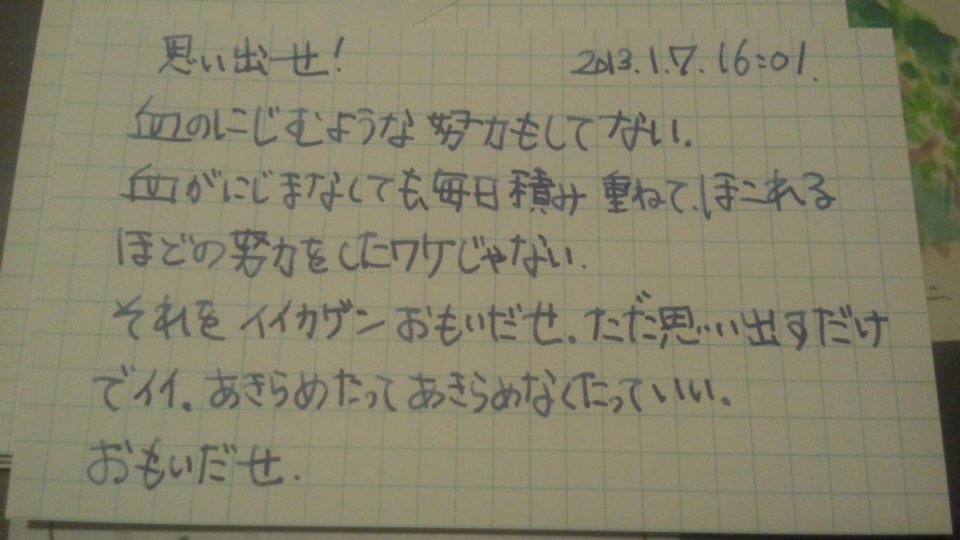 思い出せ! 2013.1.7.16:01.
血のにじむような努力もしてない.
血がにじまなくても、毎日積み重ねて、ほこれる
ほどの努力をしたワケじゃない.
それをイイカゲンおもいだせ.ただ思い出すだけ
でイイ.あきらめたってあきらめなくたっていい.
おもいだせ.